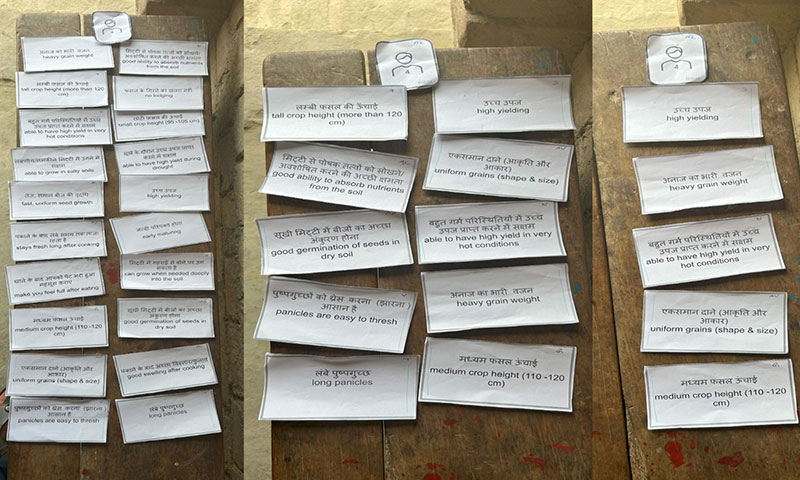 4
अनाज का भारी, वजन
heavy grain weight
लम्बी फसल की ऊंचाई
tall crop height (more than 120
cm)
बहुत गर्म परिस्थितियों में उच्च
उपज प्राप्त करने में सक्षम
able to have high yield in very
hot conditions
able to grow in salty soils
fast, uniform seed growth
stays fresh long after cooking
make you feel full after eating
मध्यम फसल ऊंचाई
medium crop height (110 -120
cm)
एकसमान दाने (आकृति और
आकार)
uniform grains (shape & size)
पुष्पगुच्छों को थ्रेस करना (झारना)
आसान है
panicles are easy to thresh
मिट्टी से पोषक तत्वों को सोखने/
अवशोषित करने की अच्छी क्षमता
good ability to absorb nutrients
from the soil
no lodging
छोटी फसल की ऊंचाई
small crop height (95 -105 cm)
able to have high yield during
drought
उच्च उपज
high yielding
early maturing
can grow when seeded deeply
into the soil
सूखी मिट्टी में बीजों का अच्छा
अंकुरण होना
good germination of seeds in
dry soil
good swelling after cooking
लंबे पुष्पगुच्छ
long panicles
4
लम्बी फसल की ऊंचाई
tall crop height (more than 120
cm)
मिट्टी से पोषक तत्वों को सोखने/
अवशोषित करने की अच्छी क्षमता
good ability to absorb nutrients
from the soil
सूखी मिट्टी में बीजों का अच्छा
अंकुरण होना
good germination of seeds in
dry soil
पुष्पगुच्छों को थ्रेस करना (झारना)
आसान है
panicles are easy to thresh
लंबे पुष्पगुच्छ
long panicles
उच्च उपज
high yielding
एकसमान दाने (आकृति और
आकार)
uniform grains (shape & size)
बहुत गर्म परिस्थितियों में उच्च
उपज प्राप्त करने में सक्षम
able to have high yield in very
hot conditions
अनाज का भारी, वजन
heavy grain weight
मध्यम फसल ऊंचाई
medium crop height (110 -120
cm)
4
उच्च उपज
high yielding
अनाज का भारी, वजन
heavy grain weight
बहुत गर्म परिस्थितियों में उच्च
उपज प्राप्त करने में सक्षम
able to have high yield in very
hot conditions
एकसमान दाने (आकृति और
आकार)
uniform grains (shape & size)
मध्यम फसल ऊंचाई
medium crop height (110 -120
cm)